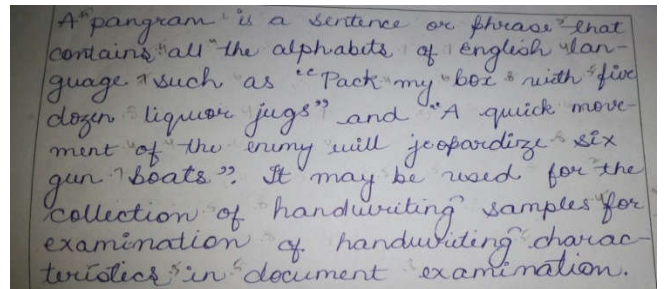 A pangram is a sentence or phrase that
contains all the alphabets of english lan-
guage such as "Pack my box with five
dozen liquor jugs" and "A quick move-
ment of the enemy will jeopardize six
gun boats". It may be used for the
collection of handwriting samples for
examination of handwriting charac-
teristics in document examination.